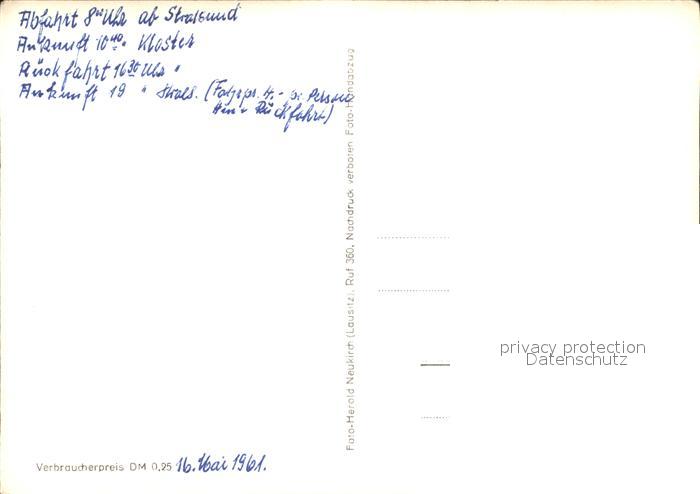 Abfahrt 8⁰⁰ Uhr ab Stralsund
Ankunft 10⁴⁰ " Kloster
Rückfahrt 16³⁰ Uhr "
Ankunft 19 " Strals. (Fahrpr. 4,- pr Person
Hin u Rückfahrt)
Foto-Herold Neukirch (Lausitz), Ruf 360, Nachdruck verboten Foto-Handabzug
privacy protection
Datenschutz
Verbraucherpreis DM 0,25 16. Mai 1961.